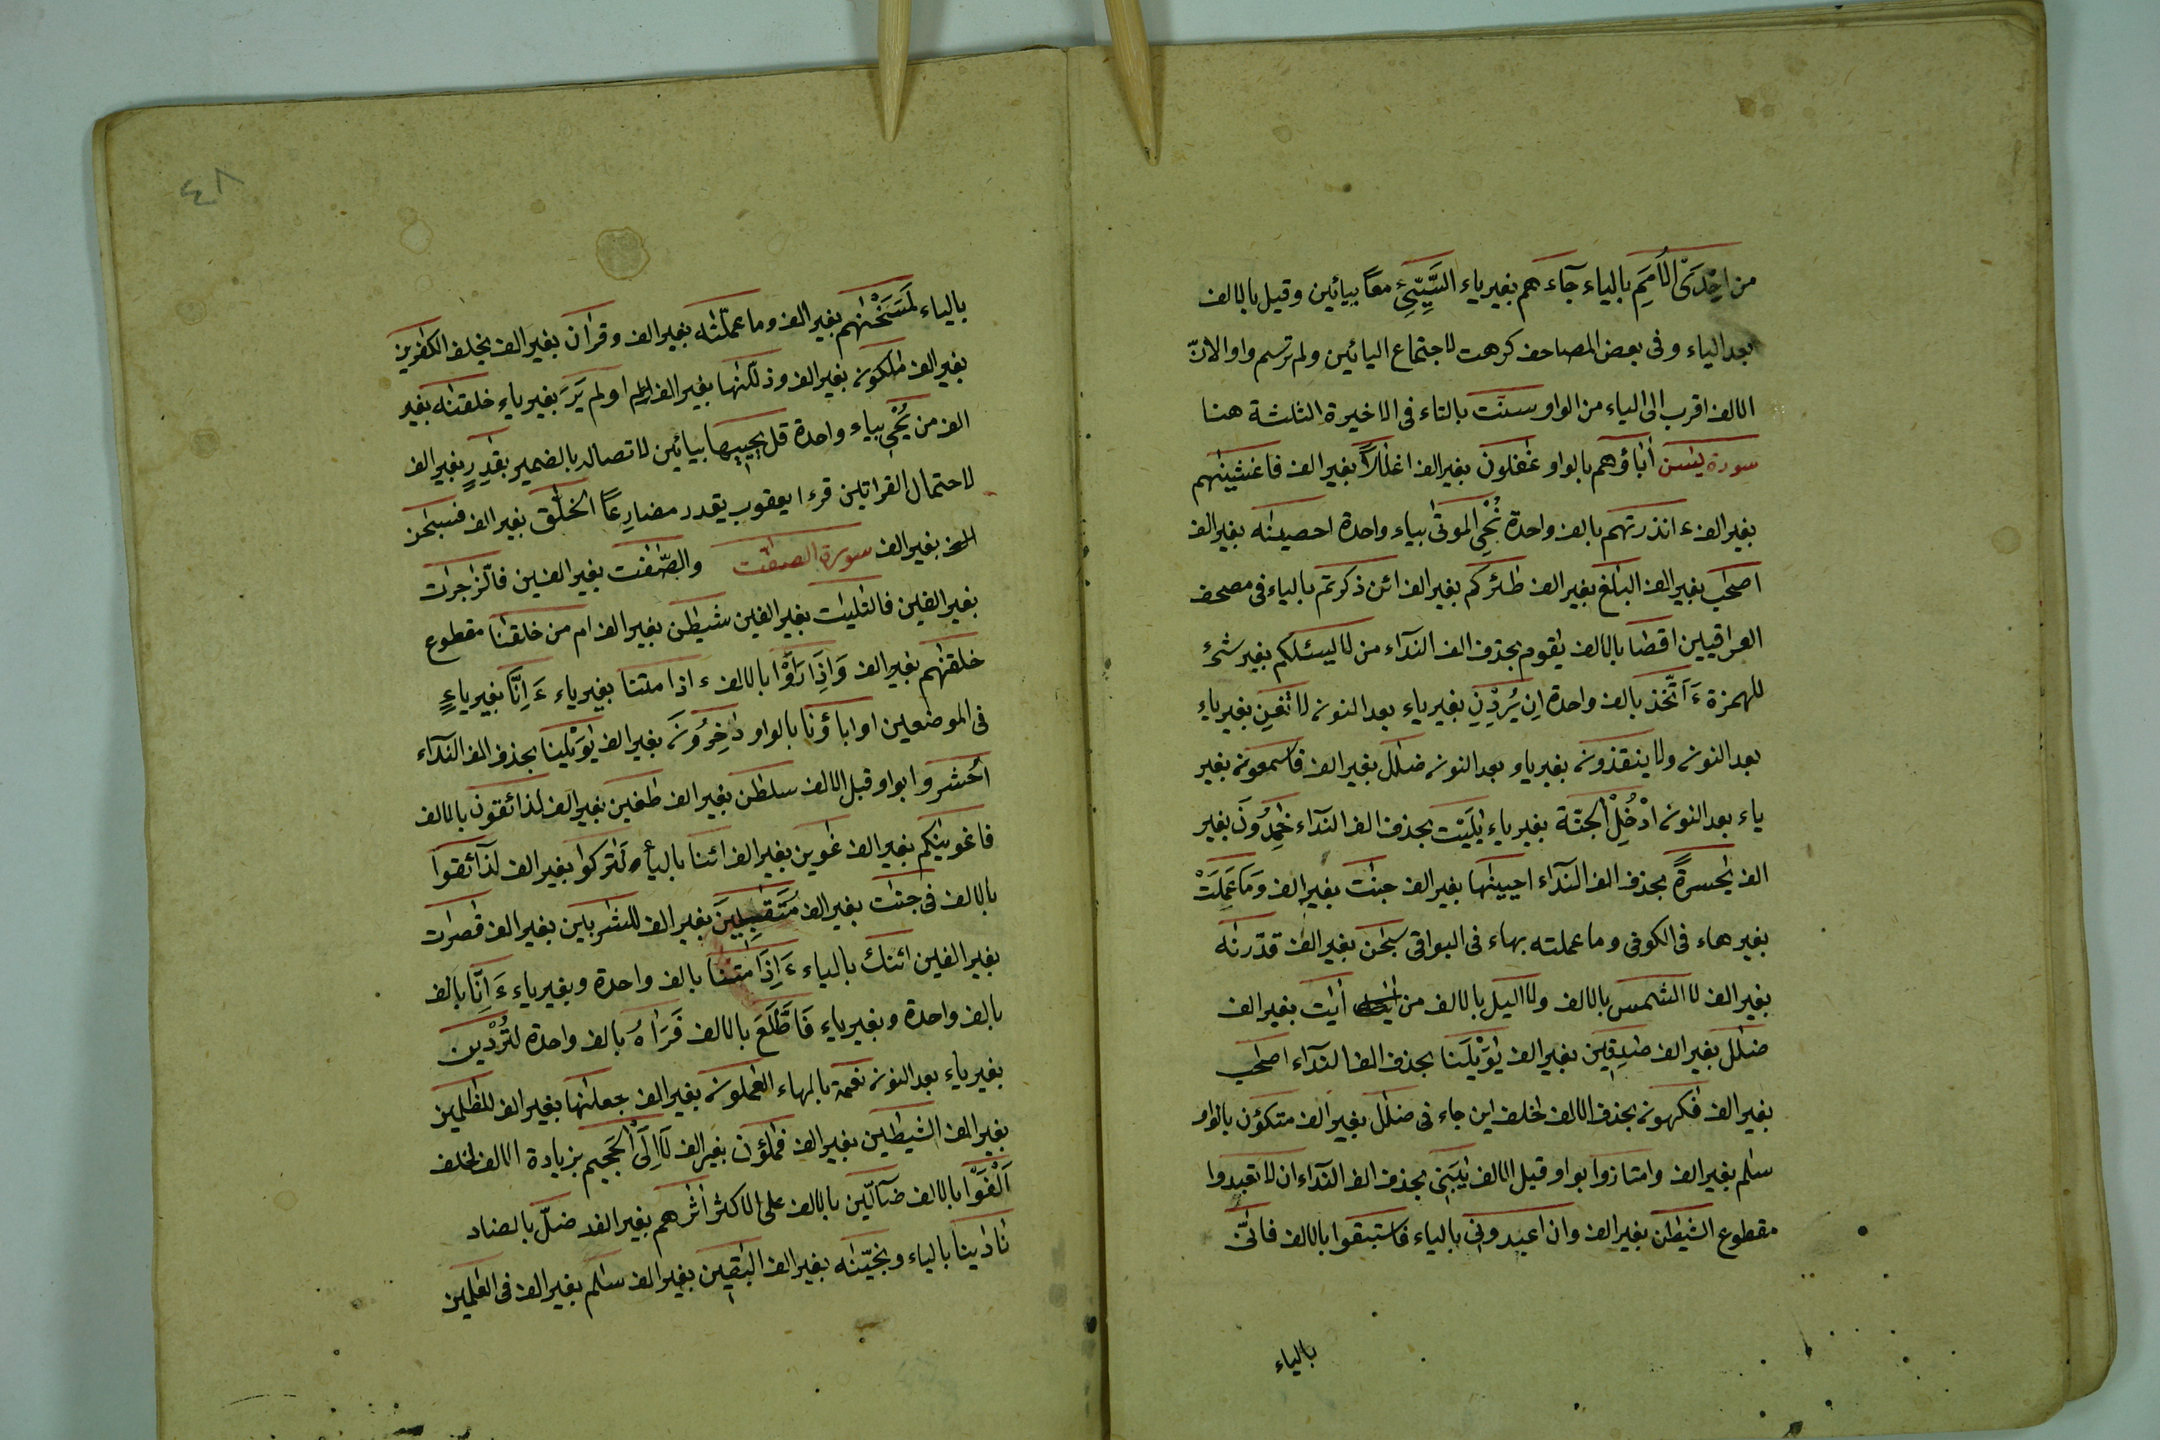 من اِحْدَى الْاُمَمِ بالياء جآءَ هم بغير ياء السَّيِّئِ معًا بيائين وقيل بالالف
بعد الياء وفى بعض المصاحف كرهت لاجتماع اليائين ولم ترسم واو الانّ
الالف اقرب الى الياء من الواو سنّت بالتاء فى الاخيرة الثلثة هنا
سورة يٰسٓ اٰباؤهم بالواو غٰفلون بغير الف اغلٰلًا بغير الف فاغشينٰهم
بغير الف ء انذرتهم بالف واحدة نُحْىِ الموتٰى بياء واحدة احصينٰه بغير الف
اصحٰب بغير الف البلٰغ بغير الف طٰئركم بغير الف ائن ذكرتم بالياء فى مصحف
العراقيين اقصا بالالف يٰقوم بحذف الف الندآء من لا يسئلكم بغير شئ
للهمزة ءَاَتّخذ بالف واحدة اِن يُرِدْنِ بغير ياء بعد النون لا تغنِ بغير ياء
بعد النون ولا ينقذون بغير ياو بعد النون ضلٰل بغير الف فاسمعون بغير
ياء بعد النون ادْخُلِ الْجنّة بغير ياء يٰلَيْت بحذف الف الندآء خٰمِدُونَ بغير
الف يٰحسرةً بحذف الف الندآء احيينٰها بغير الف جنّٰت بغير الف وَمَا عَمِلَتْ
بغير هاء فى الكوفى وما عملته بهاء فى البواقى سبحٰن بغير الف قدّرنٰه
بغير الف لا الشمس بالالف ولا اليل بالالف من اٰيٰت بغير الف
ضلٰل بغير الف صٰدِقِين بغير الف يٰوَيْلَنا بحذف الف الندآء اصحٰب
بغير الف فٰكهون بحذف الالف لخلف اين جاء فى ضلٰل بغير الف متكؤن بالواو
سلٰم بغير الف وامتازوا بواو قبل الالف يٰبَنِى بحذف الف الندآء ان لا تعبدوا
مقطوع الشيطٰن بغير الف وان اعبدونى بالياء فاستبقوا بالالف فانّى
بالياء
٤٨
بالياء لَمَسَخْنٰهم بغير الف وما عملته بغير الف وقرٰان بغير الف بخلف الكٰفرين
بغير الف مٰلكون بغير الف وذلّلنٰها بغير الف اولم يَرَ بغير ياء خلقنٰه بغير
الف من يُحْىِ بياء واحدة قل يحييها بيائين لاتصاله بالضمير بقٰدِرٍ بغير الف
لاحتمال القراتين قرءا يعقوب يقدر مضارِعًا الخلّٰق بغير الف فسبحٰن
الف بغير الف سورة الصّٰفّت والصّٰفّٰت بغير الفين فالزّٰجرٰت
بغير الفين فالتّٰليٰت بغير الفين شيطٰن بغير الف ام من خلقنا مقطوع
خلقنٰهم بغير الف وَاِذَا رَاَوْا بالالف ء اذا متنا بغير ياء ءَ اِنَّا بغير ياءٍ
فى الموضعين او اٰباؤنا بالواو دٰخِرُونَ بغير الف يٰوَيْلَنا بحذف الف الندآء
اُحشروا بواو قبل الالف سلطٰن بغير الف طٰغين بغير الف لذائقون بالالف
فاغوينٰكم بغير الف غٰوين بغير الف ائنا بالياء لَتٰركوا بغير الف لذآئقوا
بالالف فى جنّٰت بغير الف مُتَقٰبِلِينَ بغير الف للشّٰربين بغير الف قٰصرٰت
بغير الفين ائنك بالياء ءَاِذَا متنا بالف واحدة وبغير ياء ءَ اِنَّا بالف
بالف واحدة وبغير ياء فَاطَّلَعَ بالالف فَرَاٰهُ بالف واحدة لتُرْدِين
بغير ياء بعد النون نعمة بالهاء العٰملون بغير الف جعلنٰها بغير الف للظّٰلمين
بغير الف الشيٰطين بغير الف فمٰلؤن بغير الف لَا اِلَى الْجَحِيم بزيادة الالف لخلف
اَلْفَوْا بالالف ضآلّين بالالف على الاكثر اٰثٰرهم بغير الف ضلّ بالضاد
نادٰينا بالياء ونجّينٰه بغير الف البٰقين بغير الف سلٰم بغير الف فى العٰلمين